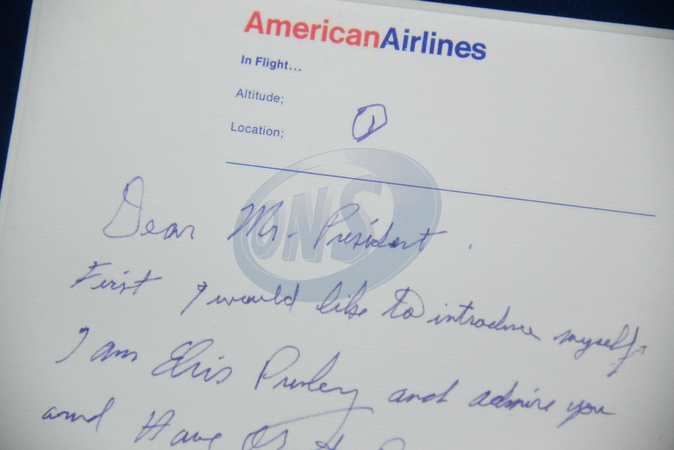 AmericanAirlines
In Flight...
Altitude;
Location;
1
Dear Mr. President.
First I would like to introduce myself.
I am Elvis Presley and admire you
and Have
GNS